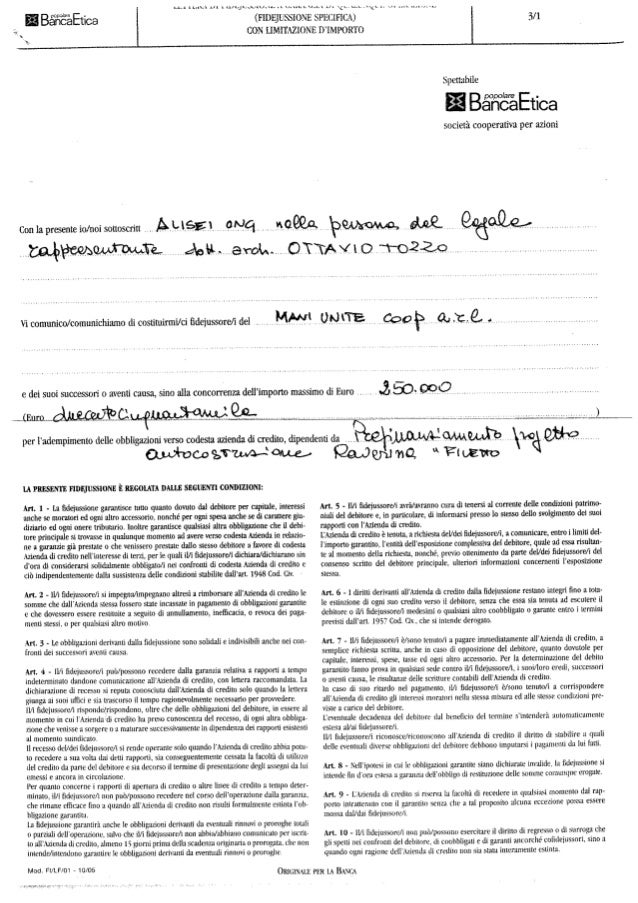 popolare
BancaEtica
(FIDEJUSSIONE SPECIFICA)
CON LIMITAZIONE D'IMPORTO
3/1
Spettabile
popolare
BancaEtica
società cooperativa per azioni
Con la presente io/noi sottoscritt ALISEI ONG nella persona del legale
rappresentante dott. arch. OTTAVIO TOZZO
Vi comunico/comunichiamo di costituirmi/ci fidejussore/i del MANI UNITE coop a.r.l.
e dei suoi successori o aventi causa, sino alla concorrenza dell'importo massimo di Euro 250.000
(Euro duecentocinquantamila )
per l'adempimento delle obbligazioni verso codesta azienda di credito, dipendenti da Prefinanziamento progetto
autocostruzione Ravenna "FILETTO
LA PRESENTE FIDEJUSSIONE È REGOLATA DALLE SEGUENTI CONDIZIONI:
Art. 1 - La fidejussione garantisce tutto quanto dovuto dal debitore per capitale, interessi
anche se moratori ed ogni altro accessorio, nonché per ogni spesa anche se di carattere giu-
diziario ed ogni onere tributario. Inoltre garantisce qualsiasi altra obbligazione che il debi-
tore principale si trovasse in qualunque momento ad avere verso codesta Azienda in relazio-
ne a garanzie già prestate o che venissero prestate dallo stesso debitore a favore di codesta
Azienda di credito nell'interesse di terzi, per le quali il/i fidejussore/i dichiara/dichiarano sin
d'ora di considerarsi solidalmente obbligato/i nei confronti di codesta Azienda di credito e
ciò indipendentemente dalla sussistenza delle condizioni stabilite dall'art. 1948 Cod. Civ.
Art. 2 - Il/i fidejussore/i si impegna/impegnano altresì a rimborsare all'Azienda di credito le
somme che dall'Azienda stessa fossero state incassate in pagamento di obbligazioni garantite
e che dovessero essere restituite a seguito di annullamento, inefficacia, o revoca dei paga-
menti stessi, o per qualsiasi altro motivo.
Art. 3 - Le obbligazioni derivanti dalla fidejussione sono solidali e indivisibili anche nei con-
fronti dei successori aventi causa.
Art. 4 - Il/i fidejussore/i può/possono recedere dalla garanzia relativa a rapporti a tempo
indeterminato dandone comunicazione all'Azienda di credito, con lettera raccomandata. La
dichiarazione di recesso si reputa conosciuta dall'Azienda di credito solo quando la lettera
giunga ai suoi uffici e sia trascorso il tempo ragionevolmente necessario per provvedere.
Il/i fidejussore/i risponde/rispondono, oltre che delle obbligazioni del debitore, in essere al
momento in cui l'Azienda di credito ha preso conoscenza del recesso, di ogni altra obbliga-
zione che venisse a sorgere o a maturare successivamente in dipendenza dei rapporti esistenti
al momento suindicato.
Il recesso del/dei fidejussore/i si rende operante solo quando l'Azienda di credito abbia potu-
to recedere a sua volta dai detti rapporti, sia conseguentemente cessata la facoltà di utilizzo
del credito da parte del debitore e sia decorso il termine di presentazione degli assegni da lui
emessi e ancora in circolazione.
Per quanto concerne i rapporti di apertura di credito o altre linee di credito a tempo deter-
minato, il/i fidejussore/i non può/possono recedere nel corso dell'operazione dalla garanzia,
che rimane efficace fino a quando all'Azienda di credito non risulti formalmente estinta l'ob-
bligazione garantita.
La fidejussione garantirà anche le obbligazioni derivanti da eventuali rinnovi o proroghe totali
o parziali dell'operazione, salvo che il/i fidejussore/i non abbia/abbiano comunicato per iscrit-
to all'Azienda di credito, almeno 15 giorni prima della scadenza originaria o prorogata, che non
intende/intendono garantire le obbligazioni derivanti da eventuali rinnovi o proroghe.
Art. 5 - Il/i fidejussore/i avrà/avranno cura di tenersi al corrente delle condizioni patrimo-
niali del debitore e, in particolare, di informarsi presso lo stesso dello svolgimento dei suoi
rapporti con l'Azienda di credito.
L'Azienda di credito è tenuta, a richiesta del/dei fidejussore/i, a comunicare, entro i limiti del-
l'importo garantito, l'entità dell'esposizione complessiva del debitore, quale ad essa risultan-
te al momento della richiesta, nonché, previo ottenimento da parte del/dei fidejussore/i del
consenso scritto del debitore principale, ulteriori informazioni concernenti l'esposizione
stessa.
Art. 6 - I diritti derivanti all'Azienda di credito dalla fidejussione restano integri fino a tota-
le estinzione di ogni suo credito verso il debitore, senza che essa sia tenuta ad escutere il
debitore o il/i fidejussore/i medesimi o qualsiasi altro coobbligato o garante entro i termini
previsti dall'art. 1957 Cod. Civ., che si intende derogato.
Art. 7 - Il/i fidejussore/i è/sono tenuto/i a pagare immediatamente all'Azienda di credito, a
semplice richiesta scritta, anche in caso di opposizione del debitore, quanto dovutole per
capitale, interessi, spese, tasse ed ogni altro accessorio. Per la determinazione del debito
garantito fanno prova in qualsiasi sede contro il/i fidejussore/i, i suoi/loro eredi, successori
o aventi causa, le risultanze delle scritture contabili dell'Azienda di credito.
In caso di suo ritardo nel pagamento, il/i fidejussore/i è/sono tenuto/i a corrispondere
all'Azienda di credito gli interessi moratori nella stessa misura ed alle stesse condizioni pre-
viste a carico del debitore.
L'eventuale decadenza del debitore dal beneficio del termine s'intenderà automaticamente
estesa al/ai fidejussore/i.
Il/i fidejussore/i riconosce/riconoscono all'Azienda di credito il diritto di stabilire a quali
delle eventuali diverse obbligazioni del debitore debbono imputarsi i pagamenti da lui fatti.
Art. 8 - Nell'ipotesi in cui le obbligazioni garantite siano dichiarate invalide, la fidejussione si
intende fin d'ora estesa a garanzia dell'obbligo di restituzione delle somme comunque erogate.
Art. 9 - L'Azienda di credito si riserva la facoltà di recedere in qualsiasi momento dal rap-
porto intrattenuto con il garantito senza che a tal proposito alcuna eccezione possa essere
mossa dal/dai fidejussore/i.
Art. 10 - Il/i fidejussore/i non può/possono esercitare il diritto di regresso o di surroga che
gli spetti nei confronti del debitore, di coobbligati e di garanti ancorché cofidejussori, sino a
quando ogni ragione dell'Azienda di credito non sia stata interamente estinta.
Mod. FI/LF/01 - 10/05
ORIGINALE PER LA BANCA